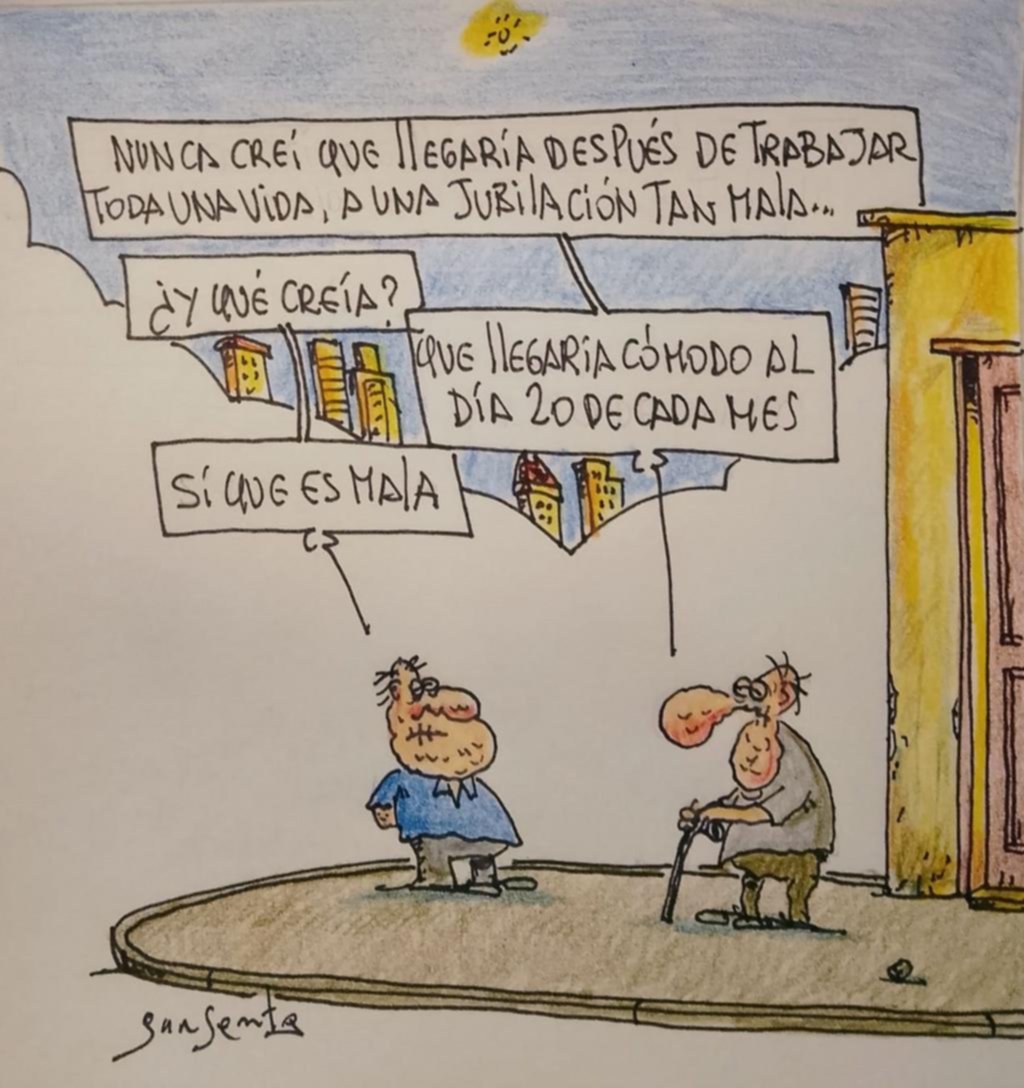 NUNCA CREÍ QUE LLEGARÍA DESPUÉS DE TRABAJAR
TODA UNA VIDA, A UNA JUBILACIÓN TAN MALA...
¿Y QUÉ CREÍA?
QUE LLEGARÍA CÓMODO AL
DÍA 20 DE CADA MES
SÍ QUE ES MALA